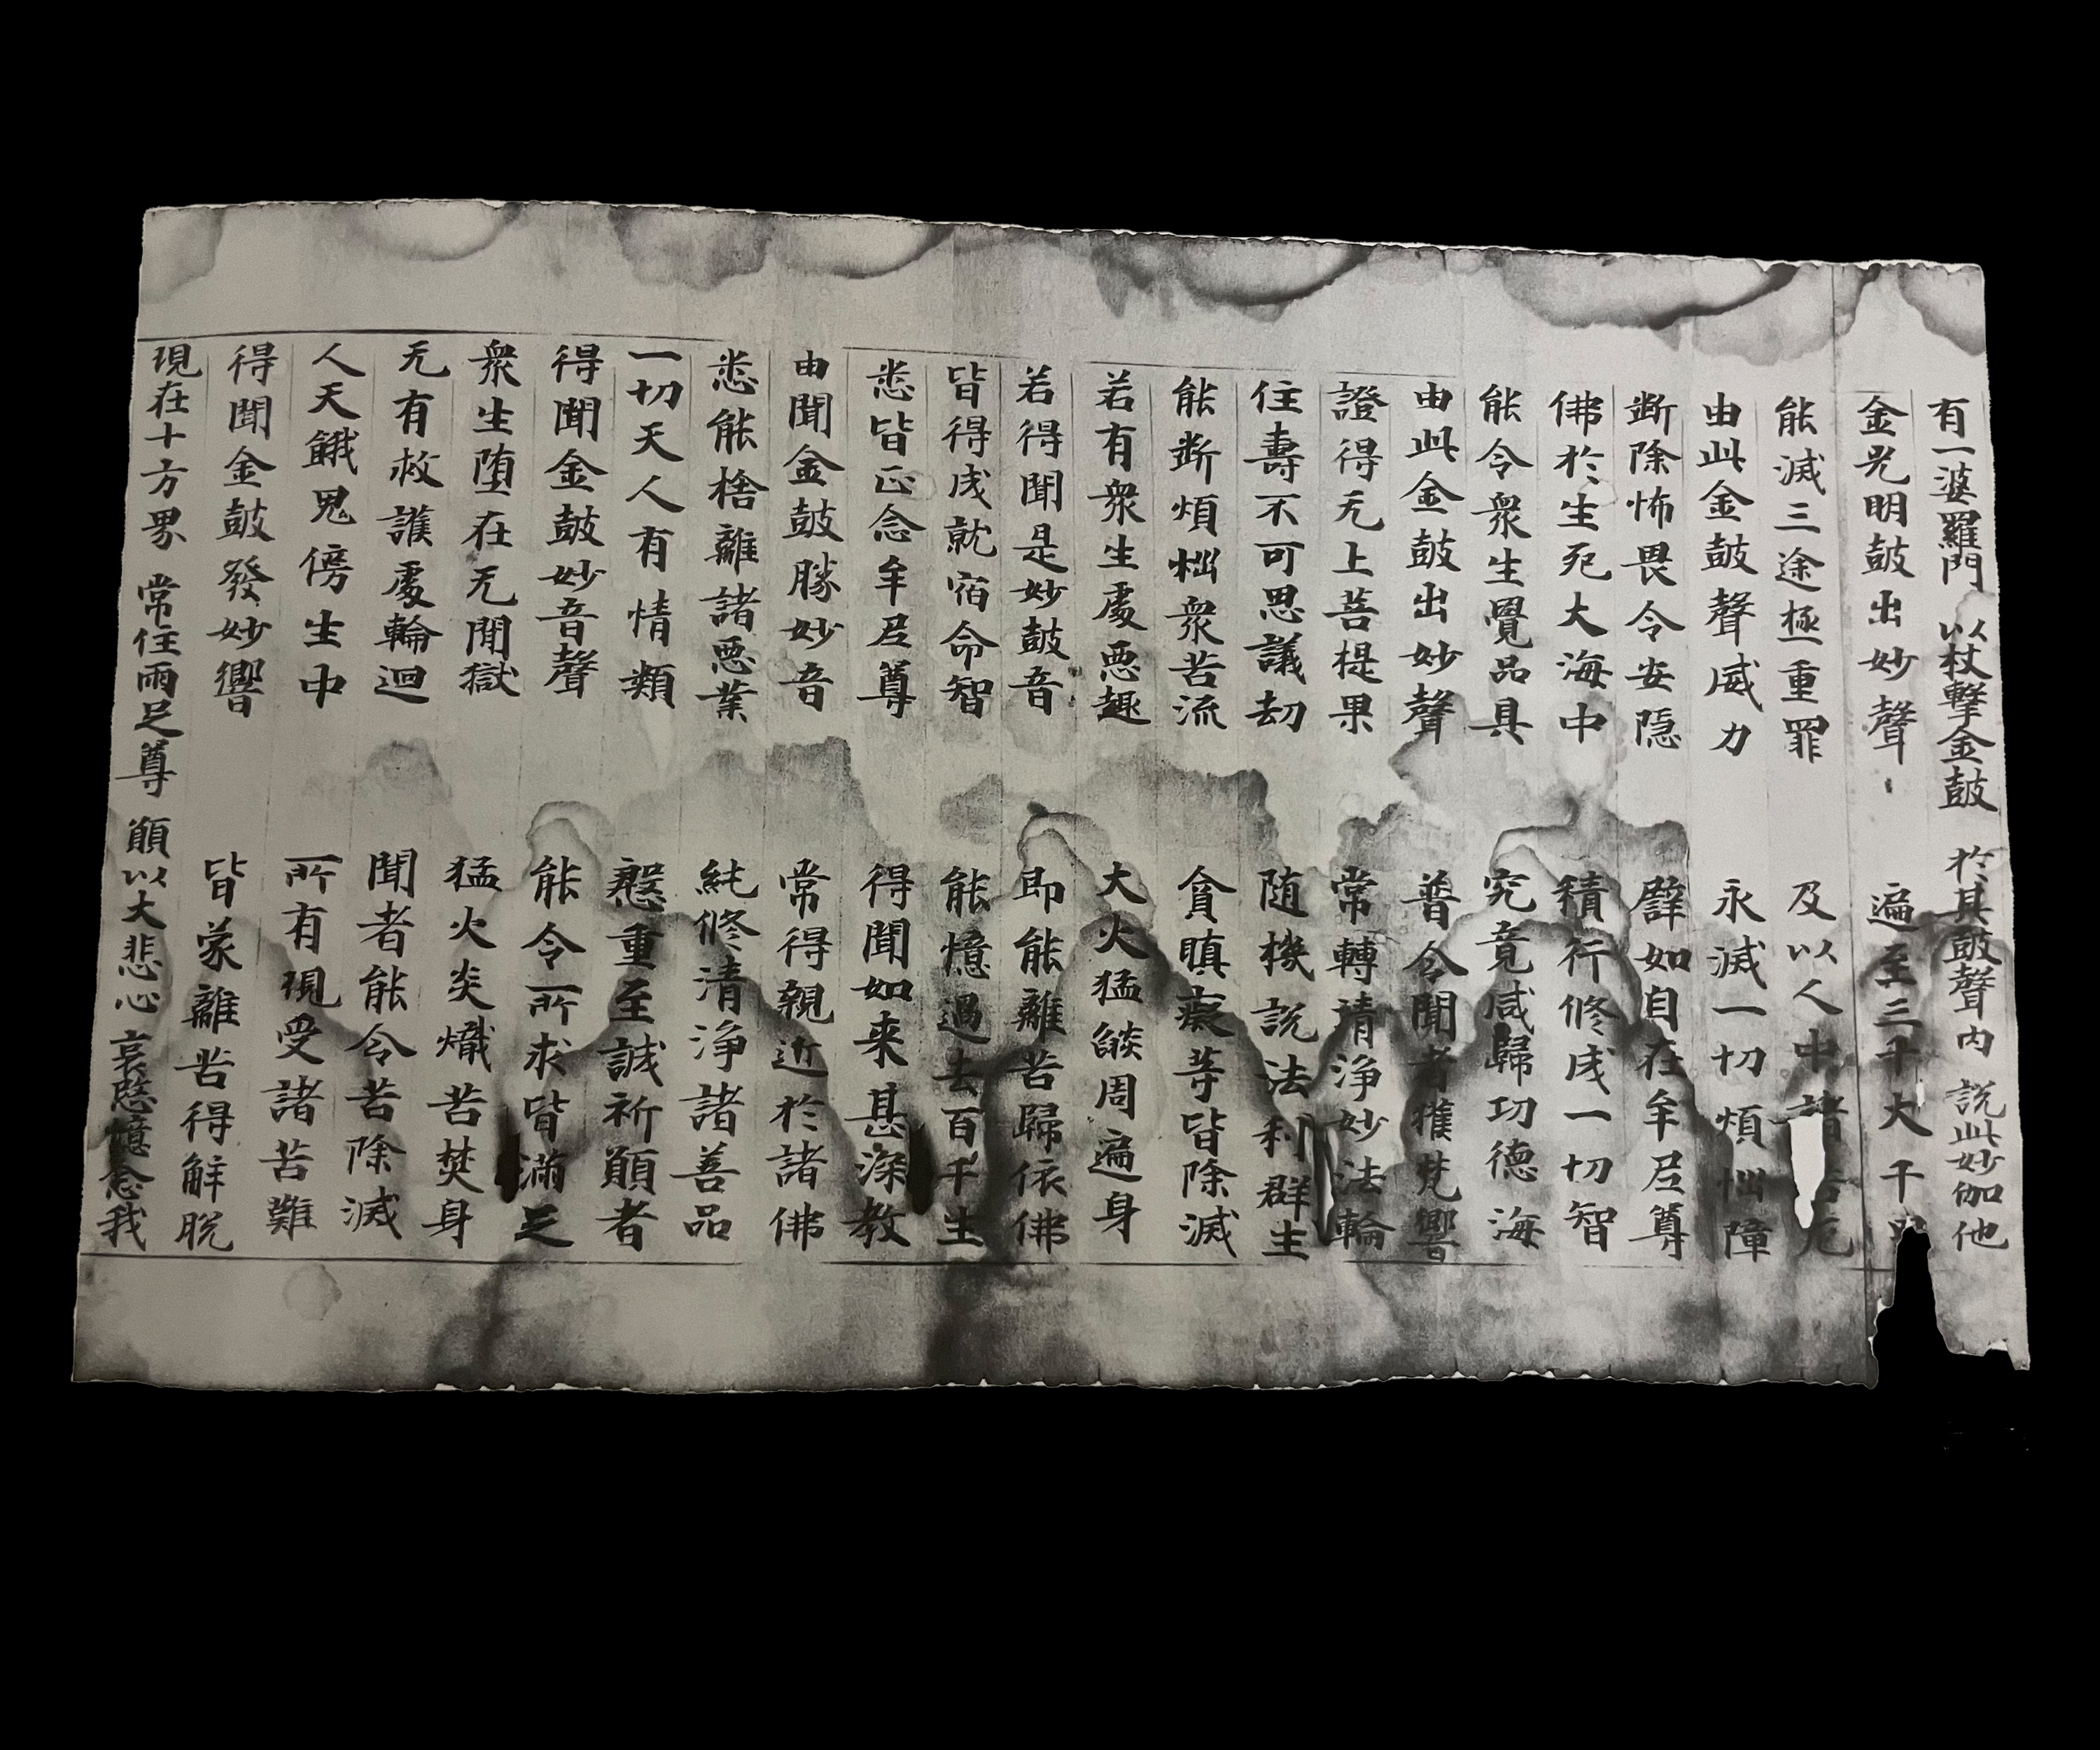 有一婆羅門 以杖擊金鼓 於其鼓聲內 説此妙伽他
金光明鼓出妙聲 遍至三千大千
能滅三途極重罪 及以人中諸苦厄
由此金鼓聲威力 永滅一切煩惱障
断除怖畏令安隠 譬如自在牟尼尊
佛於生死大海中 積行修成一切智
能令衆生覺品具 究竟咸歸功德海
由此金鼓出妙聲 普令聞者獲梵響
證得无上菩提果 常轉清淨妙法輪
住壽不可思議劫 随機説法利群生
能断煩惱衆苦流 貪瞋癡等皆除滅
若有衆生處悪趣 大火猛燄周遍身
若得聞是妙鼓音 即能離苦歸依佛
皆得成就宿命智 能憶過去百千生
悉皆正念牟尼尊 得聞如来甚深教
由聞金鼓勝妙音 常得親近於諸佛
悉能捨離諸悪業 純修清淨諸善品
一切天人有情類 慇重至誠祈願者
得聞金鼓妙音聲 能令所求皆滿足
衆生堕在无間獄 猛火炎熾苦焚身
无有救護處輪迴 聞者能令苦除滅
人天餓鬼傍生中 所有現受諸苦難
得聞金鼓發妙響 皆蒙離苦得解脱
現在十方界 常住兩足尊 願以大悲心 哀愍憶念我